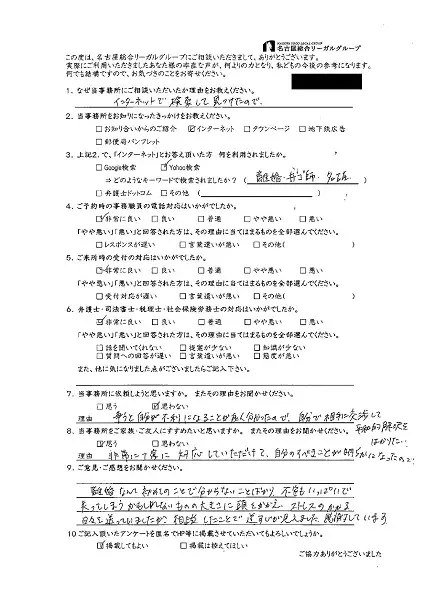 NAGOYA SOGO LEGAL GROUP
名古屋総合リーガルグループ
この度は、名古屋総合リーガルグループにご相談いただきまして、ありがとうございます。
実際にご利用いただきましたあなた様の率直な声が、何よりの力となり、私どもの今後の参考になります。
何でも結構ですので、お気づきのことをお寄せください。
1. なぜ当事務所にご相談いただいたか理由をお教えください。
インターネットで検索して見つけたので。
2. 当事務所をお知りになったきっかけをお教えください。
□お知り合いからのご紹介 ☑インターネット □タウンページ □地下鉄広告
□郵便局パンフレット
3. 上記2.で、「インターネット」とお答え頂いた方 何を利用されましたか。
□Google検索 ☑Yahoo検索
⇒どのようなキーワードで検索されましたか？（ 離婚・弁護師・名古屋 ）
□弁護士ドットコム □その他（ ）
4. ご予約時の事務職員の電話対応はいかがでしたか。
☑非常に良い □良い □普通 □やや悪い □悪い
「やや悪い」「悪い」と回答された方は、その理由に当てはまるものを全部選んでください。
□レスポンスが遅い □言葉遣いが悪い □その他（ ）
5. ご来所時の受付の対応はいかがでしたか。
☑非常に良い □良い □普通 □やや悪い □悪い
「やや悪い」「悪い」と回答された方は、その理由に当てはまるものを全部選んでください。
□受付対応が遅い □言葉遣いが悪い □その他（ ）
6. 弁護士・司法書士・税理士・社会保険労務士の対応はいかがでしたか。
☑非常に良い □良い □普通 □やや悪い □悪い
「やや悪い」「悪い」と回答された方は、その理由に当てはまるものを全部選んでください。
□話を聞いてくれない □提案が少ない □知識が少ない
□質問への回答が遅い □言葉遣いが悪い □態度が悪い
また、他に気になりました点がございましたらご記入下さい。
7. 当事務所に依頼しようと思いますか。 またその理由をお聞かせください。
□思う ☑思わない
理由 争うと自分が不利になることが分かったので、自分で相手と交渉して
和的解決を
はかりたい。
8. 当事務所をご家族・ご友人にすすめたいと思いますか。 またその理由をお聞かせください。
☑思う □思わない
理由 非常に丁寧に対応していただけて、自分のすべきことが明らかになったので
9. ご意見・ご感想をお聞かせください。
離婚なんて初めてのことで分からないことばかり、不安もいっぱいで
失ってしまうかもしれないものの大きさに頭をかかえ、ストレスのかかる
日々を送っていましたが相談したことで道すじが見えました。感謝しています
10 ご記入頂いたアンケートを匿名でHP等に掲載させていただいてもよろしいでしょうか。
☑掲載してもよい □掲載は控えてほしい
ご協力ありがとうございました